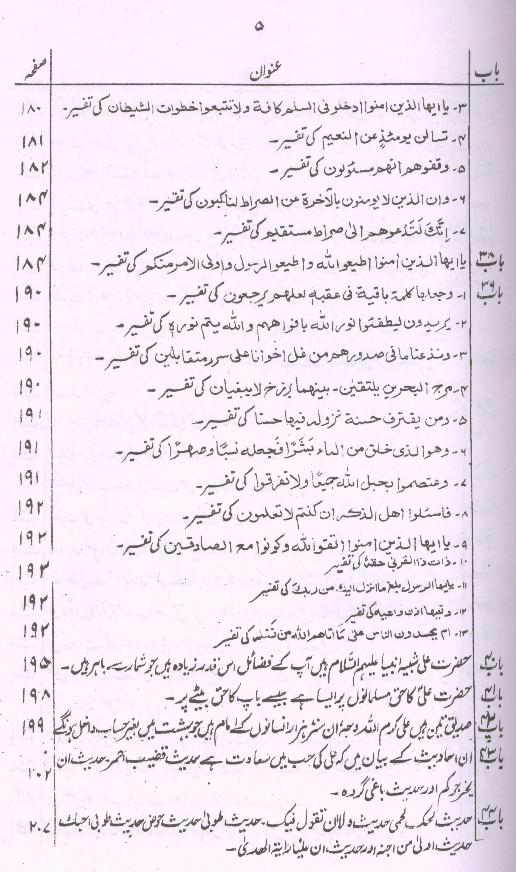 ۵
باب عنوان صفحہ
۳۔ یا ایھا الذین امنوا ادخلو فی السلم کافۃ ولا تتبعوا خطوات الشیطان کی تفسیر۔ ۱۸۰
۴۔ تسالن یومئذٍ عن النعیم کی تفسیر۔ ۱۸۱
۵۔ وقفوھم انھم مسئولون کی تفسیر۔ ۱۸۲
۶۔ وان الذین لا یومنون بالآخرۃ عن الصراط لناکبون کی تفسیر۔ ۱۸۴
۷۔ اِنَّکَ لَتَدعوھم الیٰ صراط مستقیم کی تفسیر۔ ۱۸۴
باب ۳۸ یا ایھا الذین امنوا اطیعو اللہ واطیعو الرسول واولی الامر منکم کی تفسیر۔ ۱۸۴
باب ۳۹ ۱۔ وجعلھا کلمۃ باقیۃ فی عقبہ لعلھم یرجعون کی تفسیر۔ ۱۹۰
۲۔ یریدون لیطفئوا نور اللہ بافواھھم واللہ یتم نورہ کی تفسیر۔ ۱۹۰
۳۔ ونذعنا مافی صدورھم من غل اخوانا علی سرر متقابلین کی تفسیر۔ ۱۹۰
۴۔ مرج البحرین یلتقین۔ بینھما برزخ لا یبغیان کی تفسیر۔ ۱۹۰
۵۔ ومن یقترف حسنۃ نزولہ فیھا حسنا کی تفسیر۔ ۱۹۱
۶۔ وھو الذی خلق من الماء بَشَرًا فجعلہ نسبًا وصھرًا کی تفسیر۔ ۱۹۱
۷۔ وعتصموا بحبل اللہ جمیعًا ولا تفرقوا کی تفسیر۔ ۱۹۱
۸۔ فاسئلوا اھل الذکر ان کنتم لا تعلمون کی تفسیر۔ ۱۹۲
۹۔ یا ایھا الذین امنوا القو اللہ وکونوا مع الصادقین کی تفسیر۔ ۱۹۳
۱۰۔ ذات ذالقربیٰ حقہٗ کی تفسیر ۱۹۳
۱۱۔ یایھا الرسول بلغ ما انزل الیک من ربک کی تفسیر
۱۲۔ وتعیھا اذن واعیہ کی تفسیر ۱۹۳
۱۳۔ ام یحسدون الناس علیٰ ما اٰتاھم اللہ من فضلہ کی تفسیر ۱۹۳
باب ۴۰ حضرت علی شبیہ انبیا علیہم السلام ہیں آپ کے فضائل اس قدر زیادہ ہیں جو شمار سے باہر ہیں۔ ۱۹۵
باب ۴۱ حضرت علیؑ کا حق مسلمانوں پر ایسا ہے جیسے باپ کا حق بیٹے پر۔ ۱۹۸
باب ۴۲ صدیق تین ہیں علی کرم اللہ وجہہ ان ستر ہزار انسانوں کے امام ہیں جو بہشت میں بغیر حساب داخل ہونگے ۱۹۹
باب ۴۳ ان احادیث کے بیان میں کہ علی کی حب میں سعادت ہے حدیث قضیب احمر حدیث ان
یخرجوکم اور حدیث باغی گردہ۔ ۲۰۲
باب ۴۴ حدیث لحمک لحمی حدیث ولا ان تقول فیک۔ حدیث طوبیٰ حدیث حوض حدیث طوبیٰ احبک ۲۰۷
حدیث اولیٰ من اجنہ اور حدیث ان علیاً رایۃ الھدیٰ۔